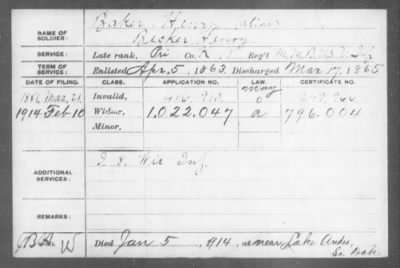 NAME OF SOLDIER: Baker, Henry (alias)
Becker Henry
SERVICE: Late rank, Pri Co. K, Reg't
TERM OF SERVICE: Enlisted Apr. 5, 1865 Discharged Mar 17, 1865
DATE OF FILING. CLASS. APPLICATION NO. LAW CERTIFICATE NO.
1886 Mar. 21. Invalid,
1914 Feb 10 Widow, 1.022.047 a 796.004
Minor,
ADDITIONAL SERVICES: Wis Inf.
REMARKS:
Died Jan 5, 1914, at near Lake Andes,
So. Dak.